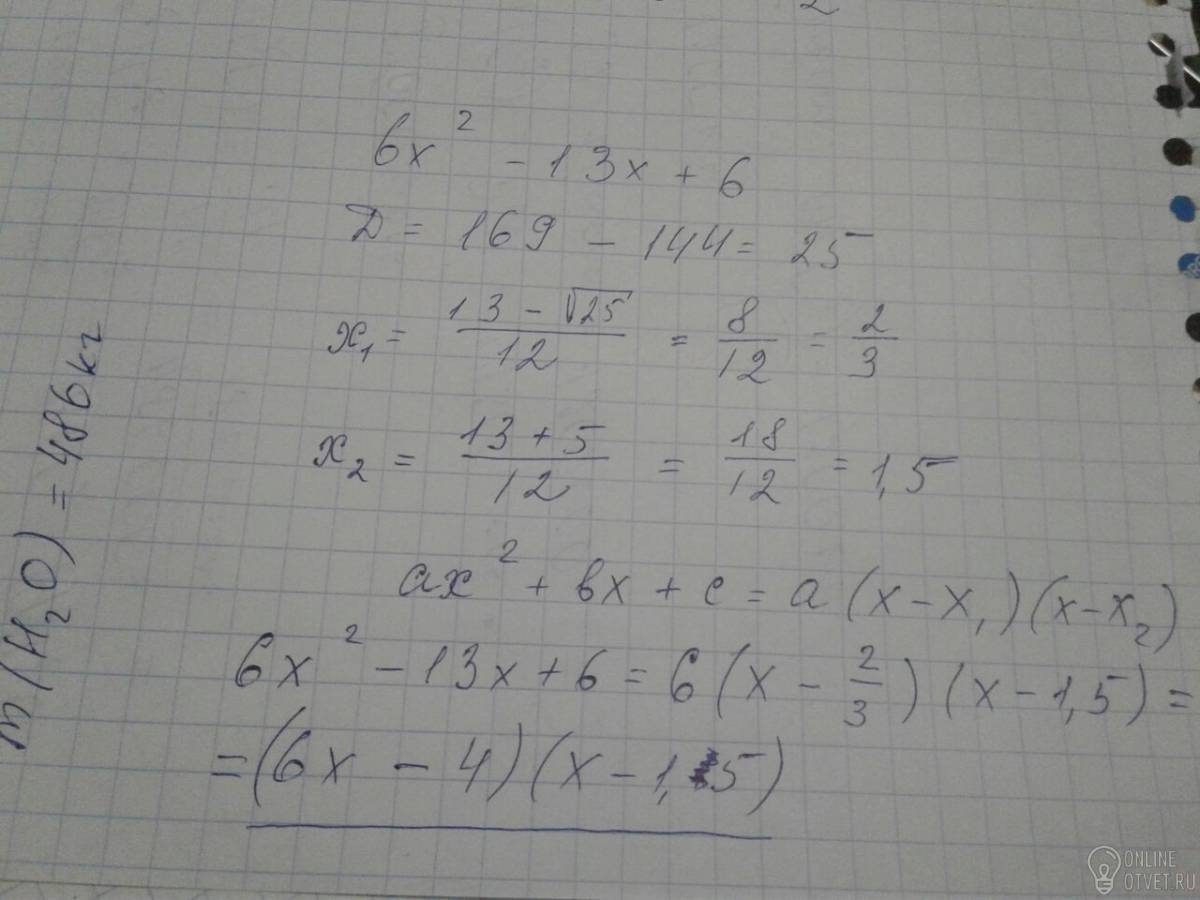 2
6x² - 13x + 6
D = 169 - 144 = 25
x₁ = (13 - √25)/12 = 8/12 = 2/3
x₂ = (13 + 5)/12 = 18/12 = 1,5
ax² + bx + c = a(x - x₁)(x - x₂)
6x² - 13x + 6 = 6(x - 2/3)(x - 1,5) =
= (6x - 4)(x - 1,5)
m(H₂O) = 486кг
ONLINE
OTVET.RU